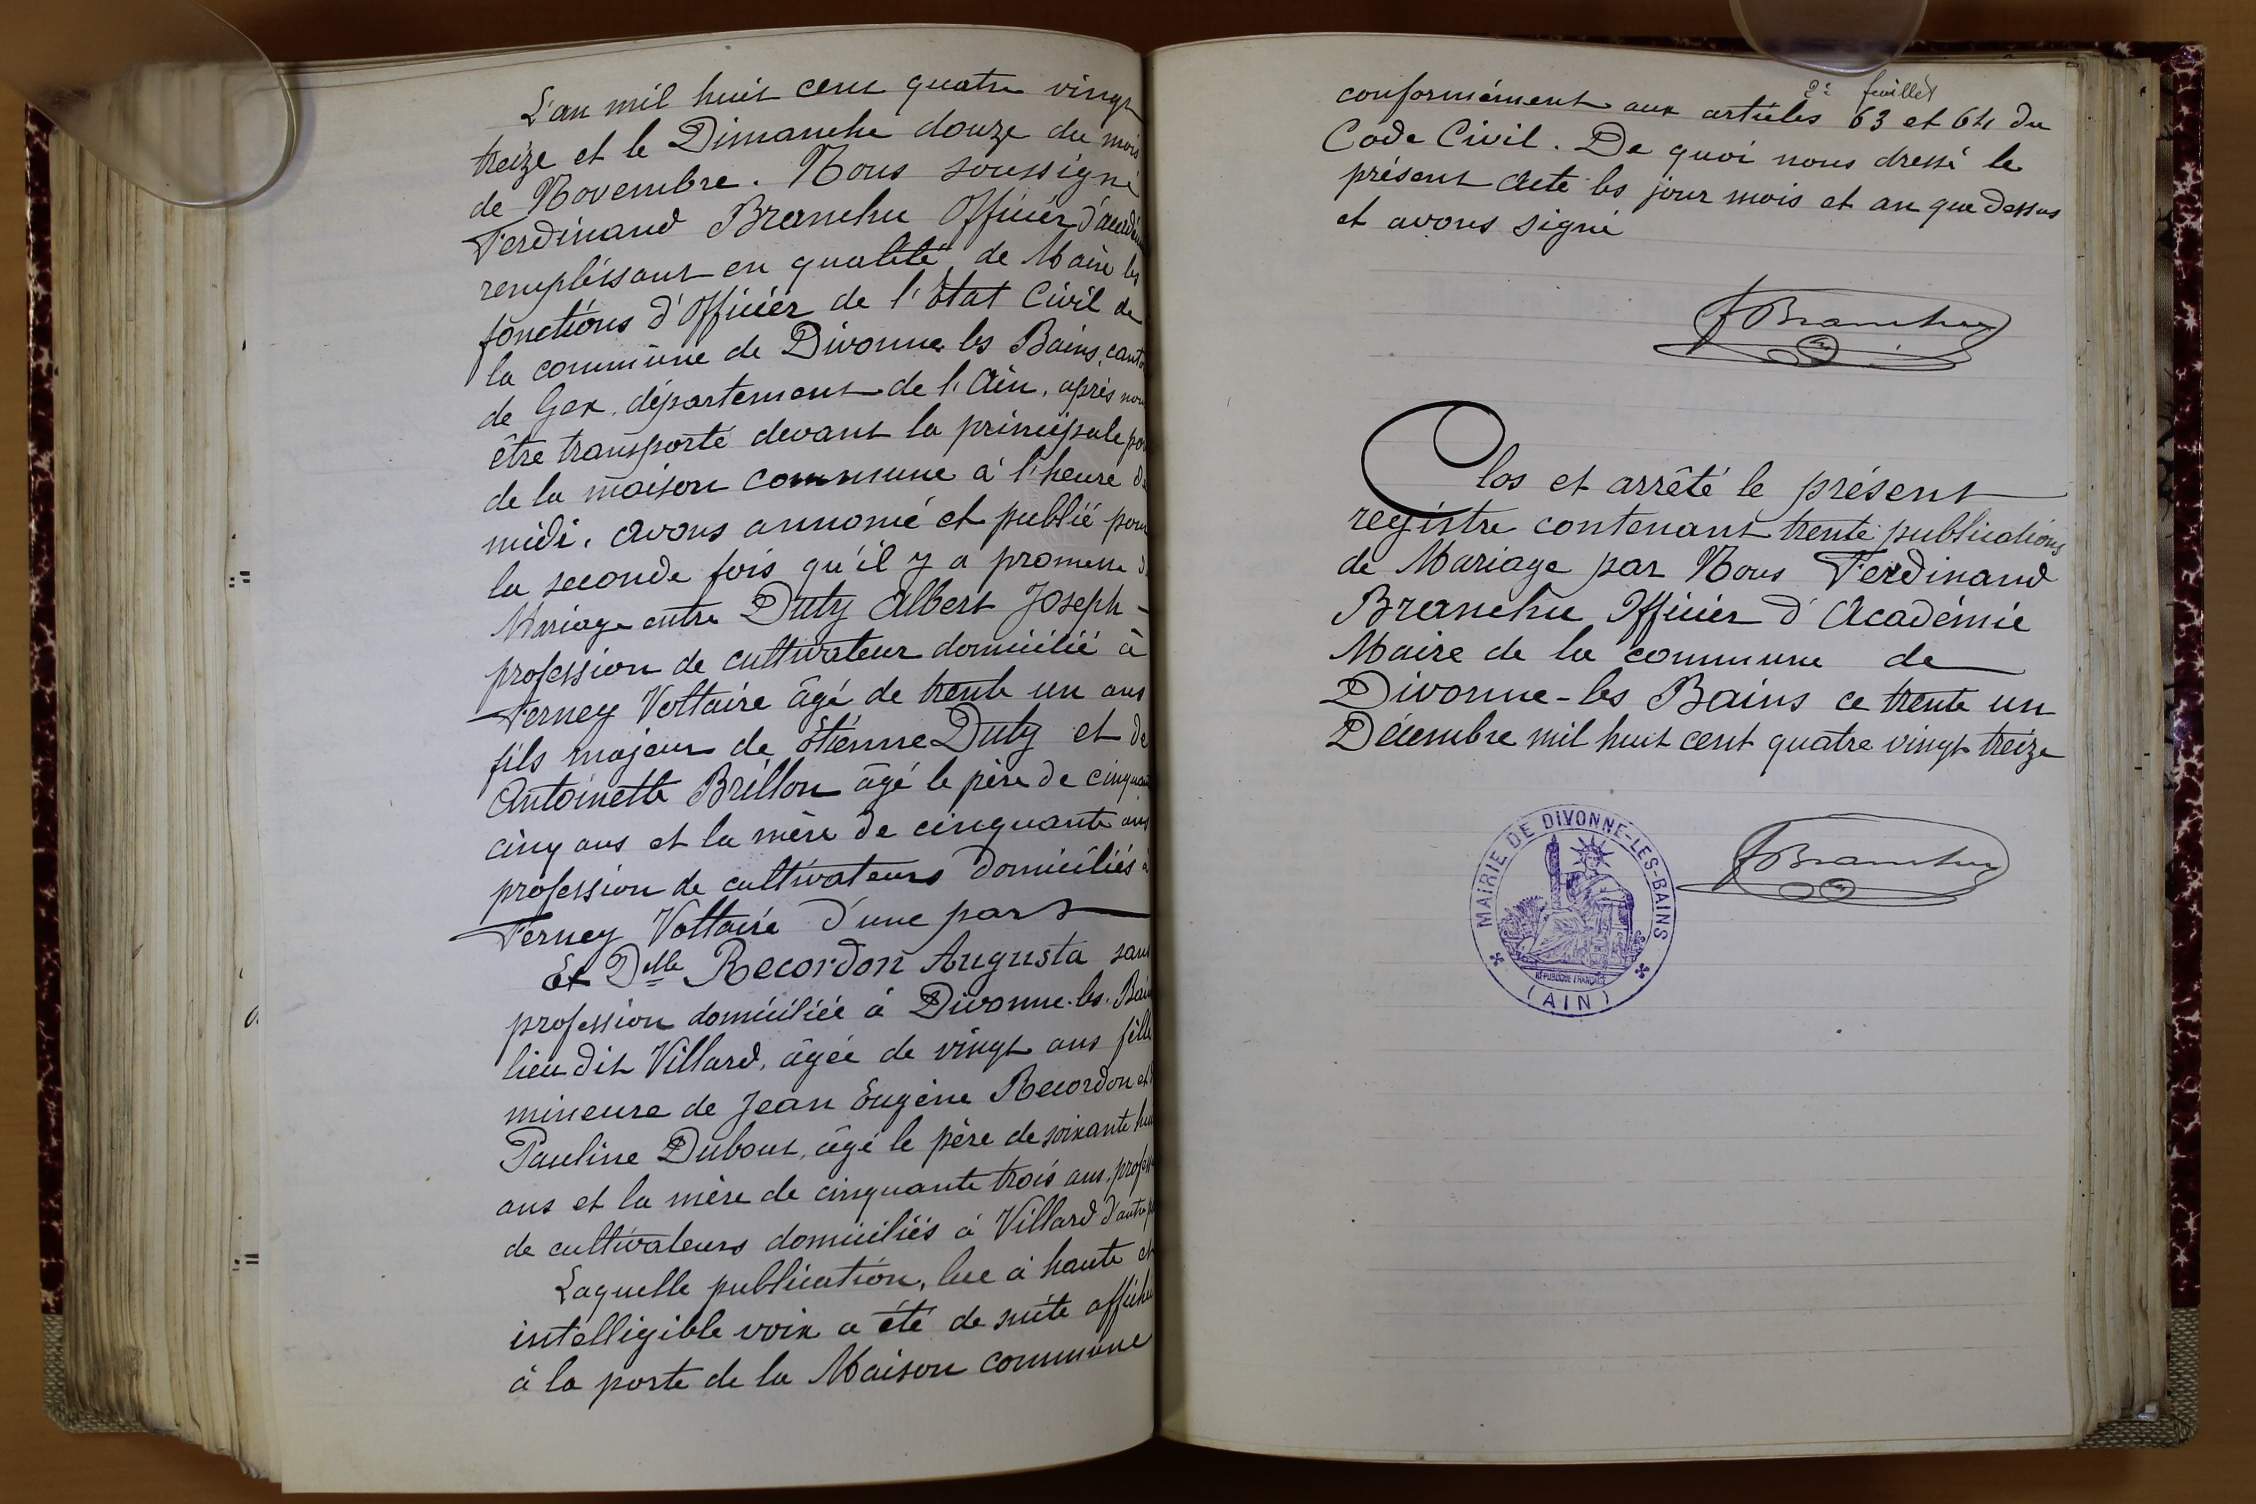 L'an mil huit cent quatre vingt
treize et le Dimanche douze du mois
de Novembre. Nous soussigné
Ferdinand Branchu Officier d'académ
remplissant en qualité de Maire les
fonctions d'Officier de l'État Civil de
la commune de Divonne les Bains, canto
de Gex, département de l'Ain, après nou
être transporté devant la principale por
de la maison commune à l'heure de
midi, avons annoncé et publié pour
la seconde fois qu'il y a promesse d
Mariage entre Duty Albert Joseph -
profession de cultivateur domicilié à
Ferney Voltaire âgé de trente un ans
fils majeur de Étienne Duty et de
Antoinette Brillon âgé le père de cinquan
cinq ans et la mère de cinquante ans
profession de cultivateurs domiciliés à
Ferney Voltaire d'une part
Et Delle Recordon Augusta sans
profession domiciliée à Divonne-les-Bain
lieu dit Villard, âgée de vingt ans fille
mineure de Jean Eugène Recordon et
Pauline Dubout, âgé le père de soixante hu
ans et la mère de cinquante trois ans, profess
de cultivateurs domiciliés à Villard d'autre p
Laquelle publication, lue à haute et
intelligible voix a été de suite affichée
à la porte de la Maison commune
2e feuillet
conformément aux articles 63 et 64 du
Code Civil. De quoi nous dressé le
présent Acte les jour mois et an que dessus
et avons signé
FBranchu
Clos et arrêté le présent
registre contenant trente publications
de Mariage par Nous Ferdinand
Branchu Officier d'Académie
Maire de la commune de
Divonne-les Bains ce trente un
Décembre mil huit cent quatre vingt treize
MAIRIE DE DIVONNE-LES-BAINS
RÉPUBLIQUE FRANÇAISE
(AIN)
FBranchu